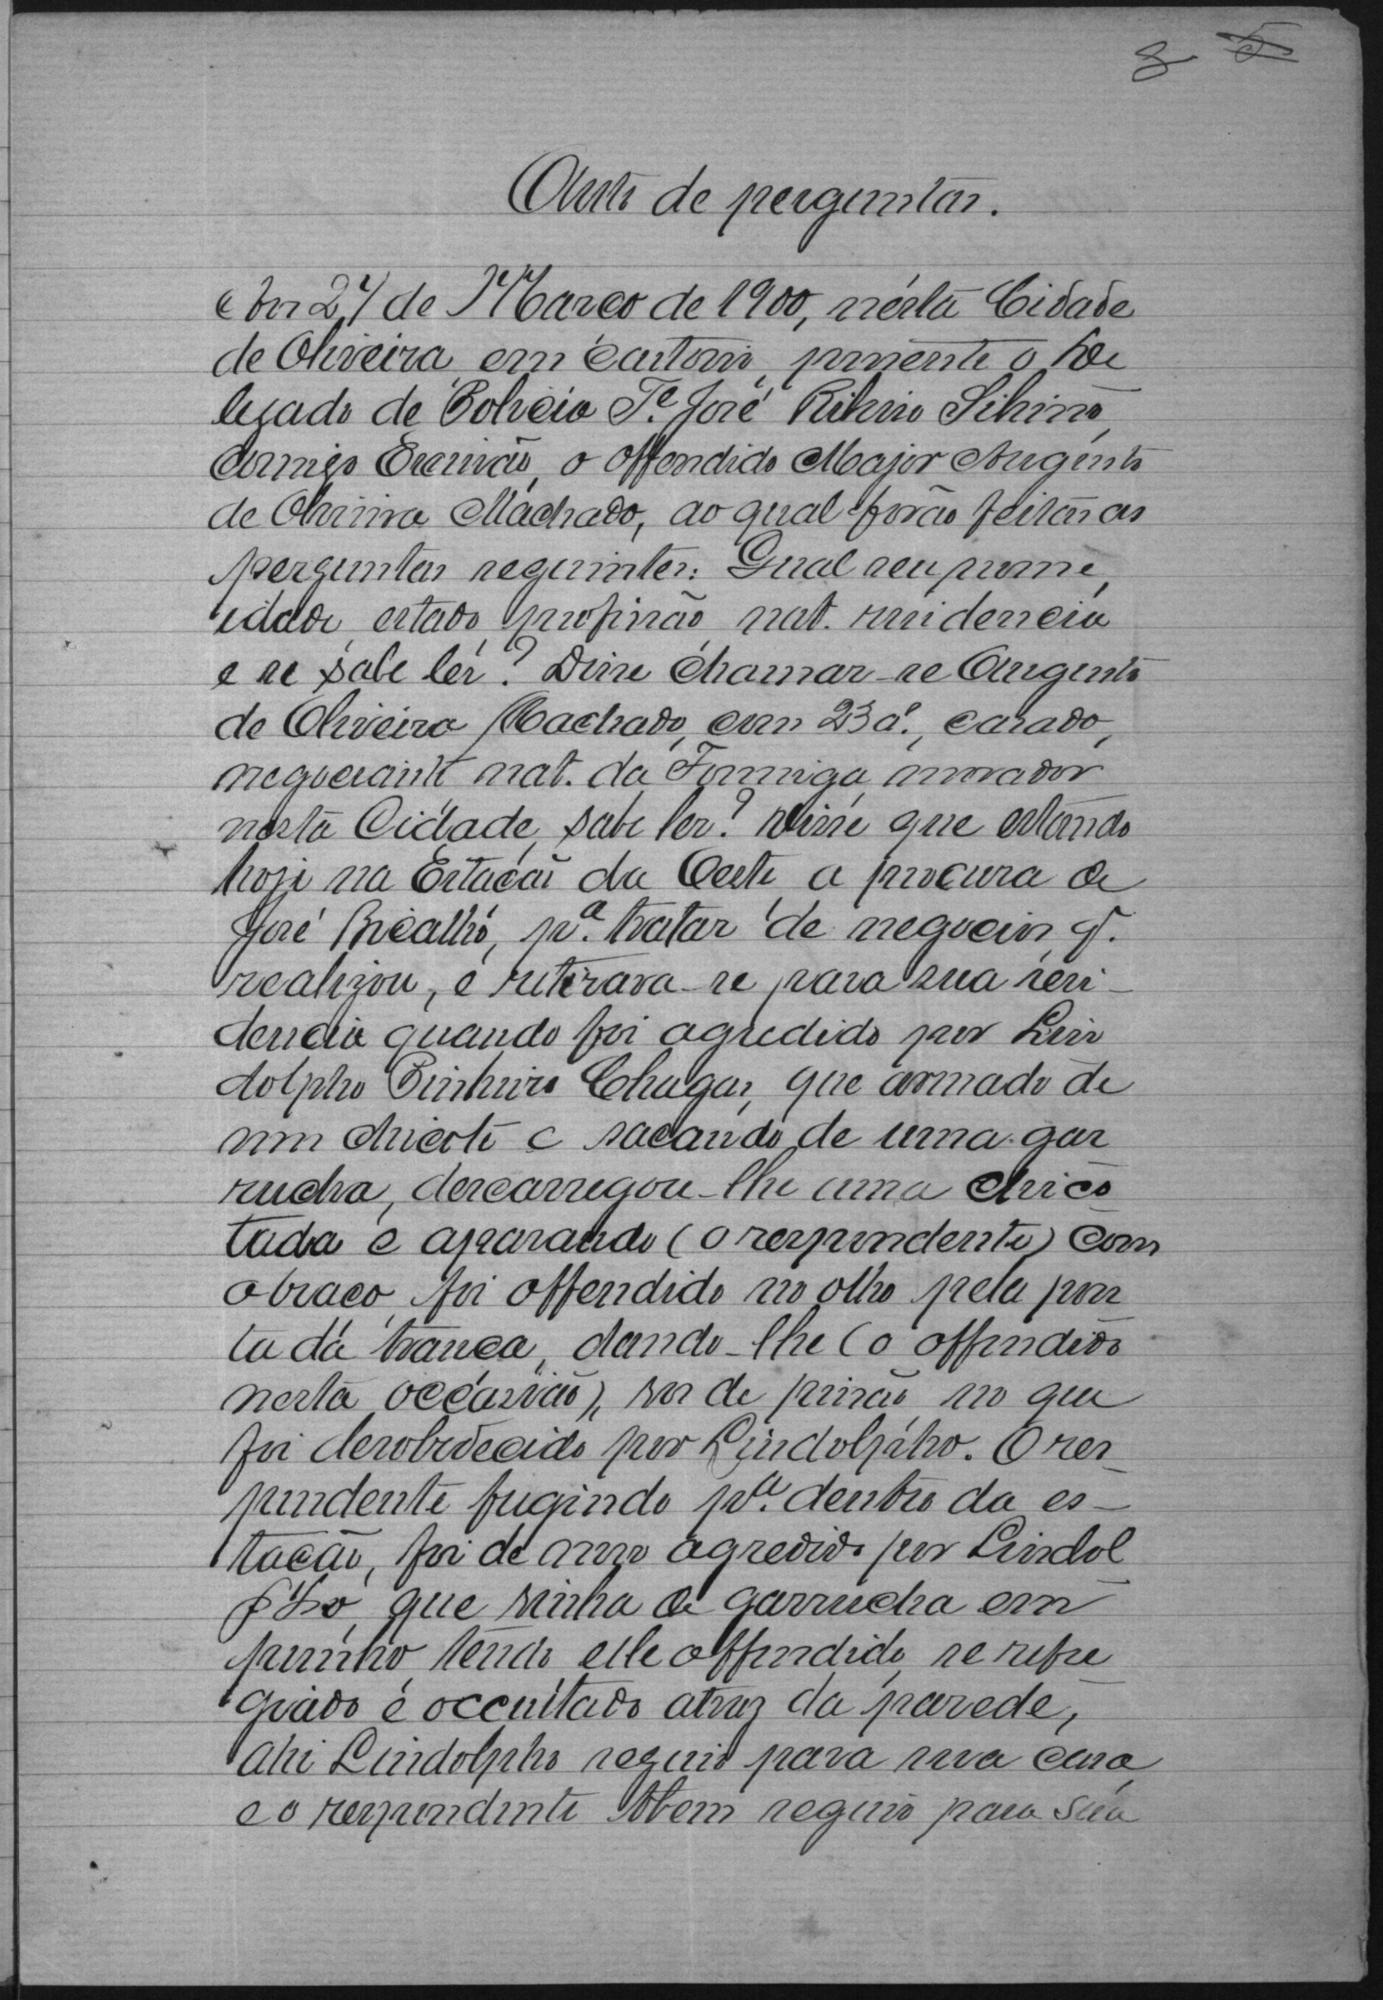 8 5
Auto de perguntas.
Em 27 de Março de 1900, nésta Cidade
de Oliveira, em Cartorio, presente o De
legado de Policia Te. José Ribeiro
comigo Escrivão, o offendido Major Augusto
de Oliveira Machado, ao qual forão feitas as
perguntas seguintes: Qual seu nome,
idade, estado, profissão, nat. residencia
e se sabe lêr? Disse chamar-se Augusto
de Oliveira Machado, com 23 a., casado,
negociante, nat. da Formiga, morador
nesta Cidade, sabe ler? disse que estando
hoje na Estação da Oeste a procura de
José Bicalho, pa. tratar de negocios q.
realizou, e retirava-se para sua resi-
dencia quando foi agredido por Lin
dolpho Pinheiro Chagas, que armado de
um chicote e sacando de uma gar
rucha, descarregou-lhe uma chico
tada e aparando (o respondente) com
o braço, foi offendido no olho pela pon
ta da trança, dando-lhe (o offendido
nesta occasião), voz de prisão no que
foi desobedecido por Lindolpho. O res-
pondente fugindo pa. dentro da es-
tação, foi de novo agredido por Lindol
pho, que vinha de garrucha em
punho, tendo elle offendido, se refu
giado e occultado atraz da parede,
Ahi Lindolpho seguio para sua casa,
e o respondente tbem seguio para sua